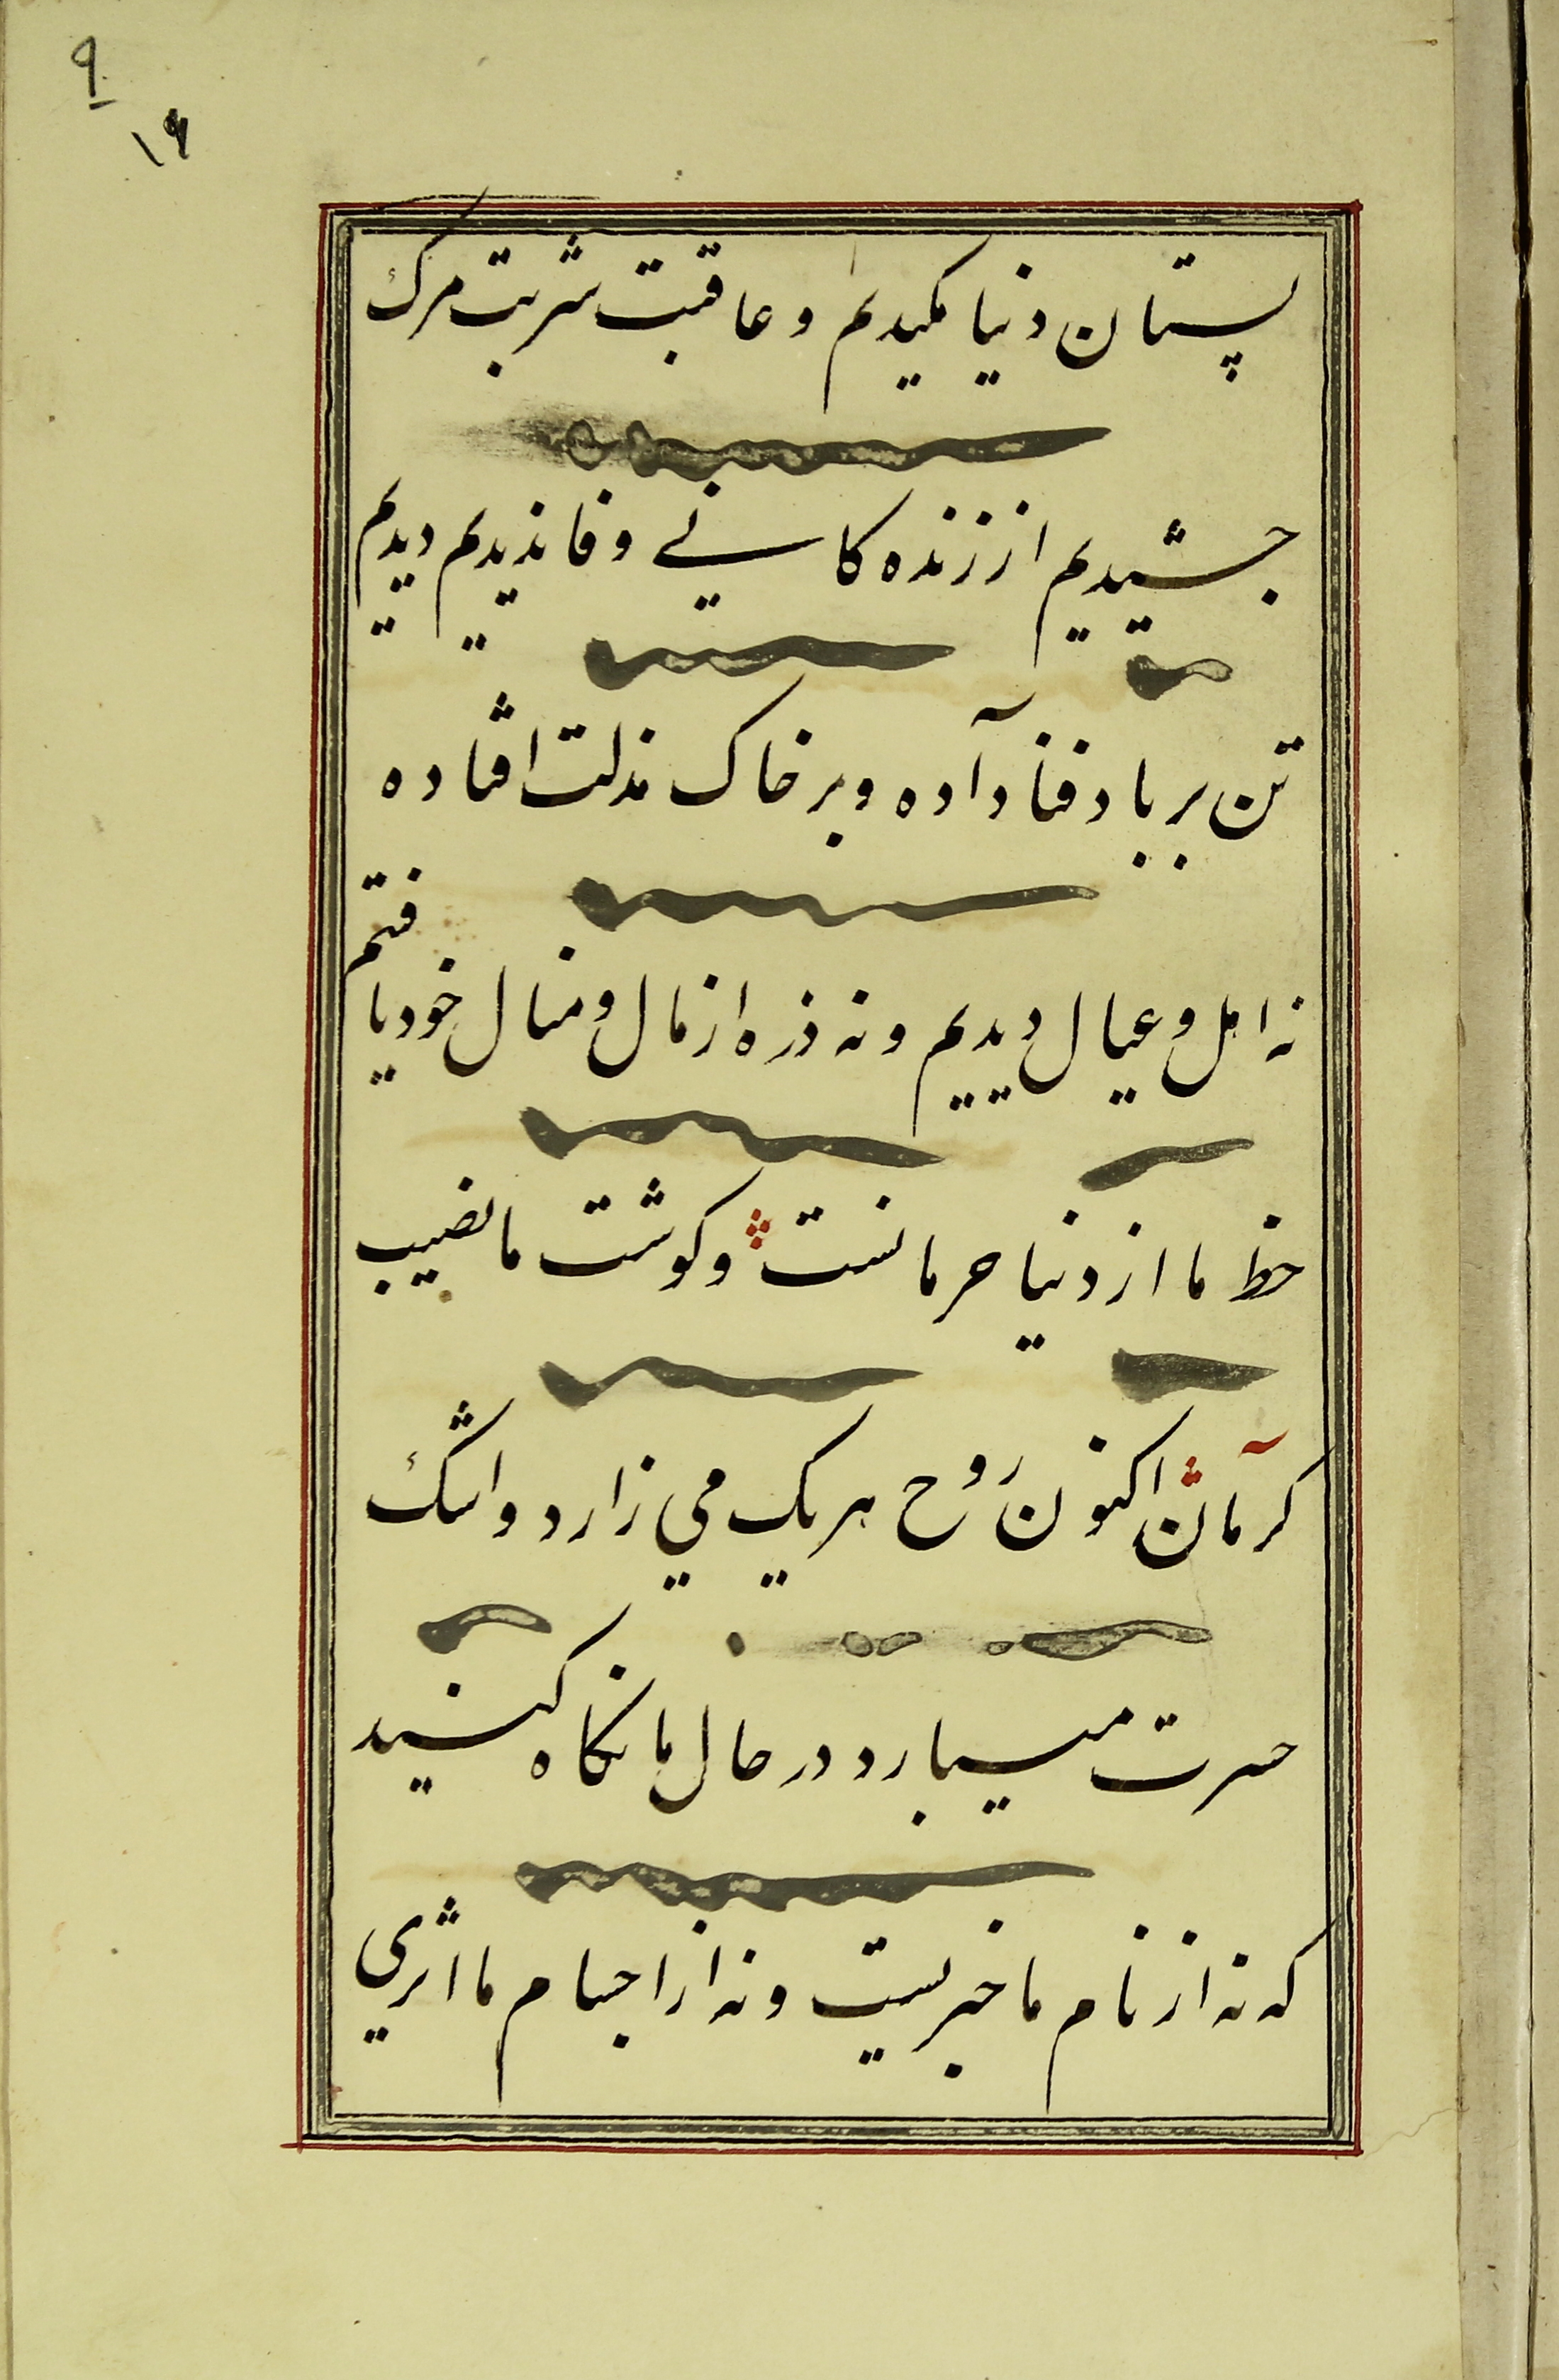 ۹
۱۶
پستان دنیا مکیدیم و عاقبت شربت مرک
چشیدیم از زنده کانی وفا ندیدیم دیدیم
تن بر باد فنا دآده و بر خاک مذلت افتاده
نه اهل و عیال دیدیم و نه ذره از مال و منال خود یافتیم
حظ ما از دنیا حرمانست و کوشت ما نصیب
کرمان اکنون روح هر یک می زارد و اشک
حسرت میبارد در حال ما نکاه کنید
که نه از نام ما خبریست و نه از اجسام ما اثری